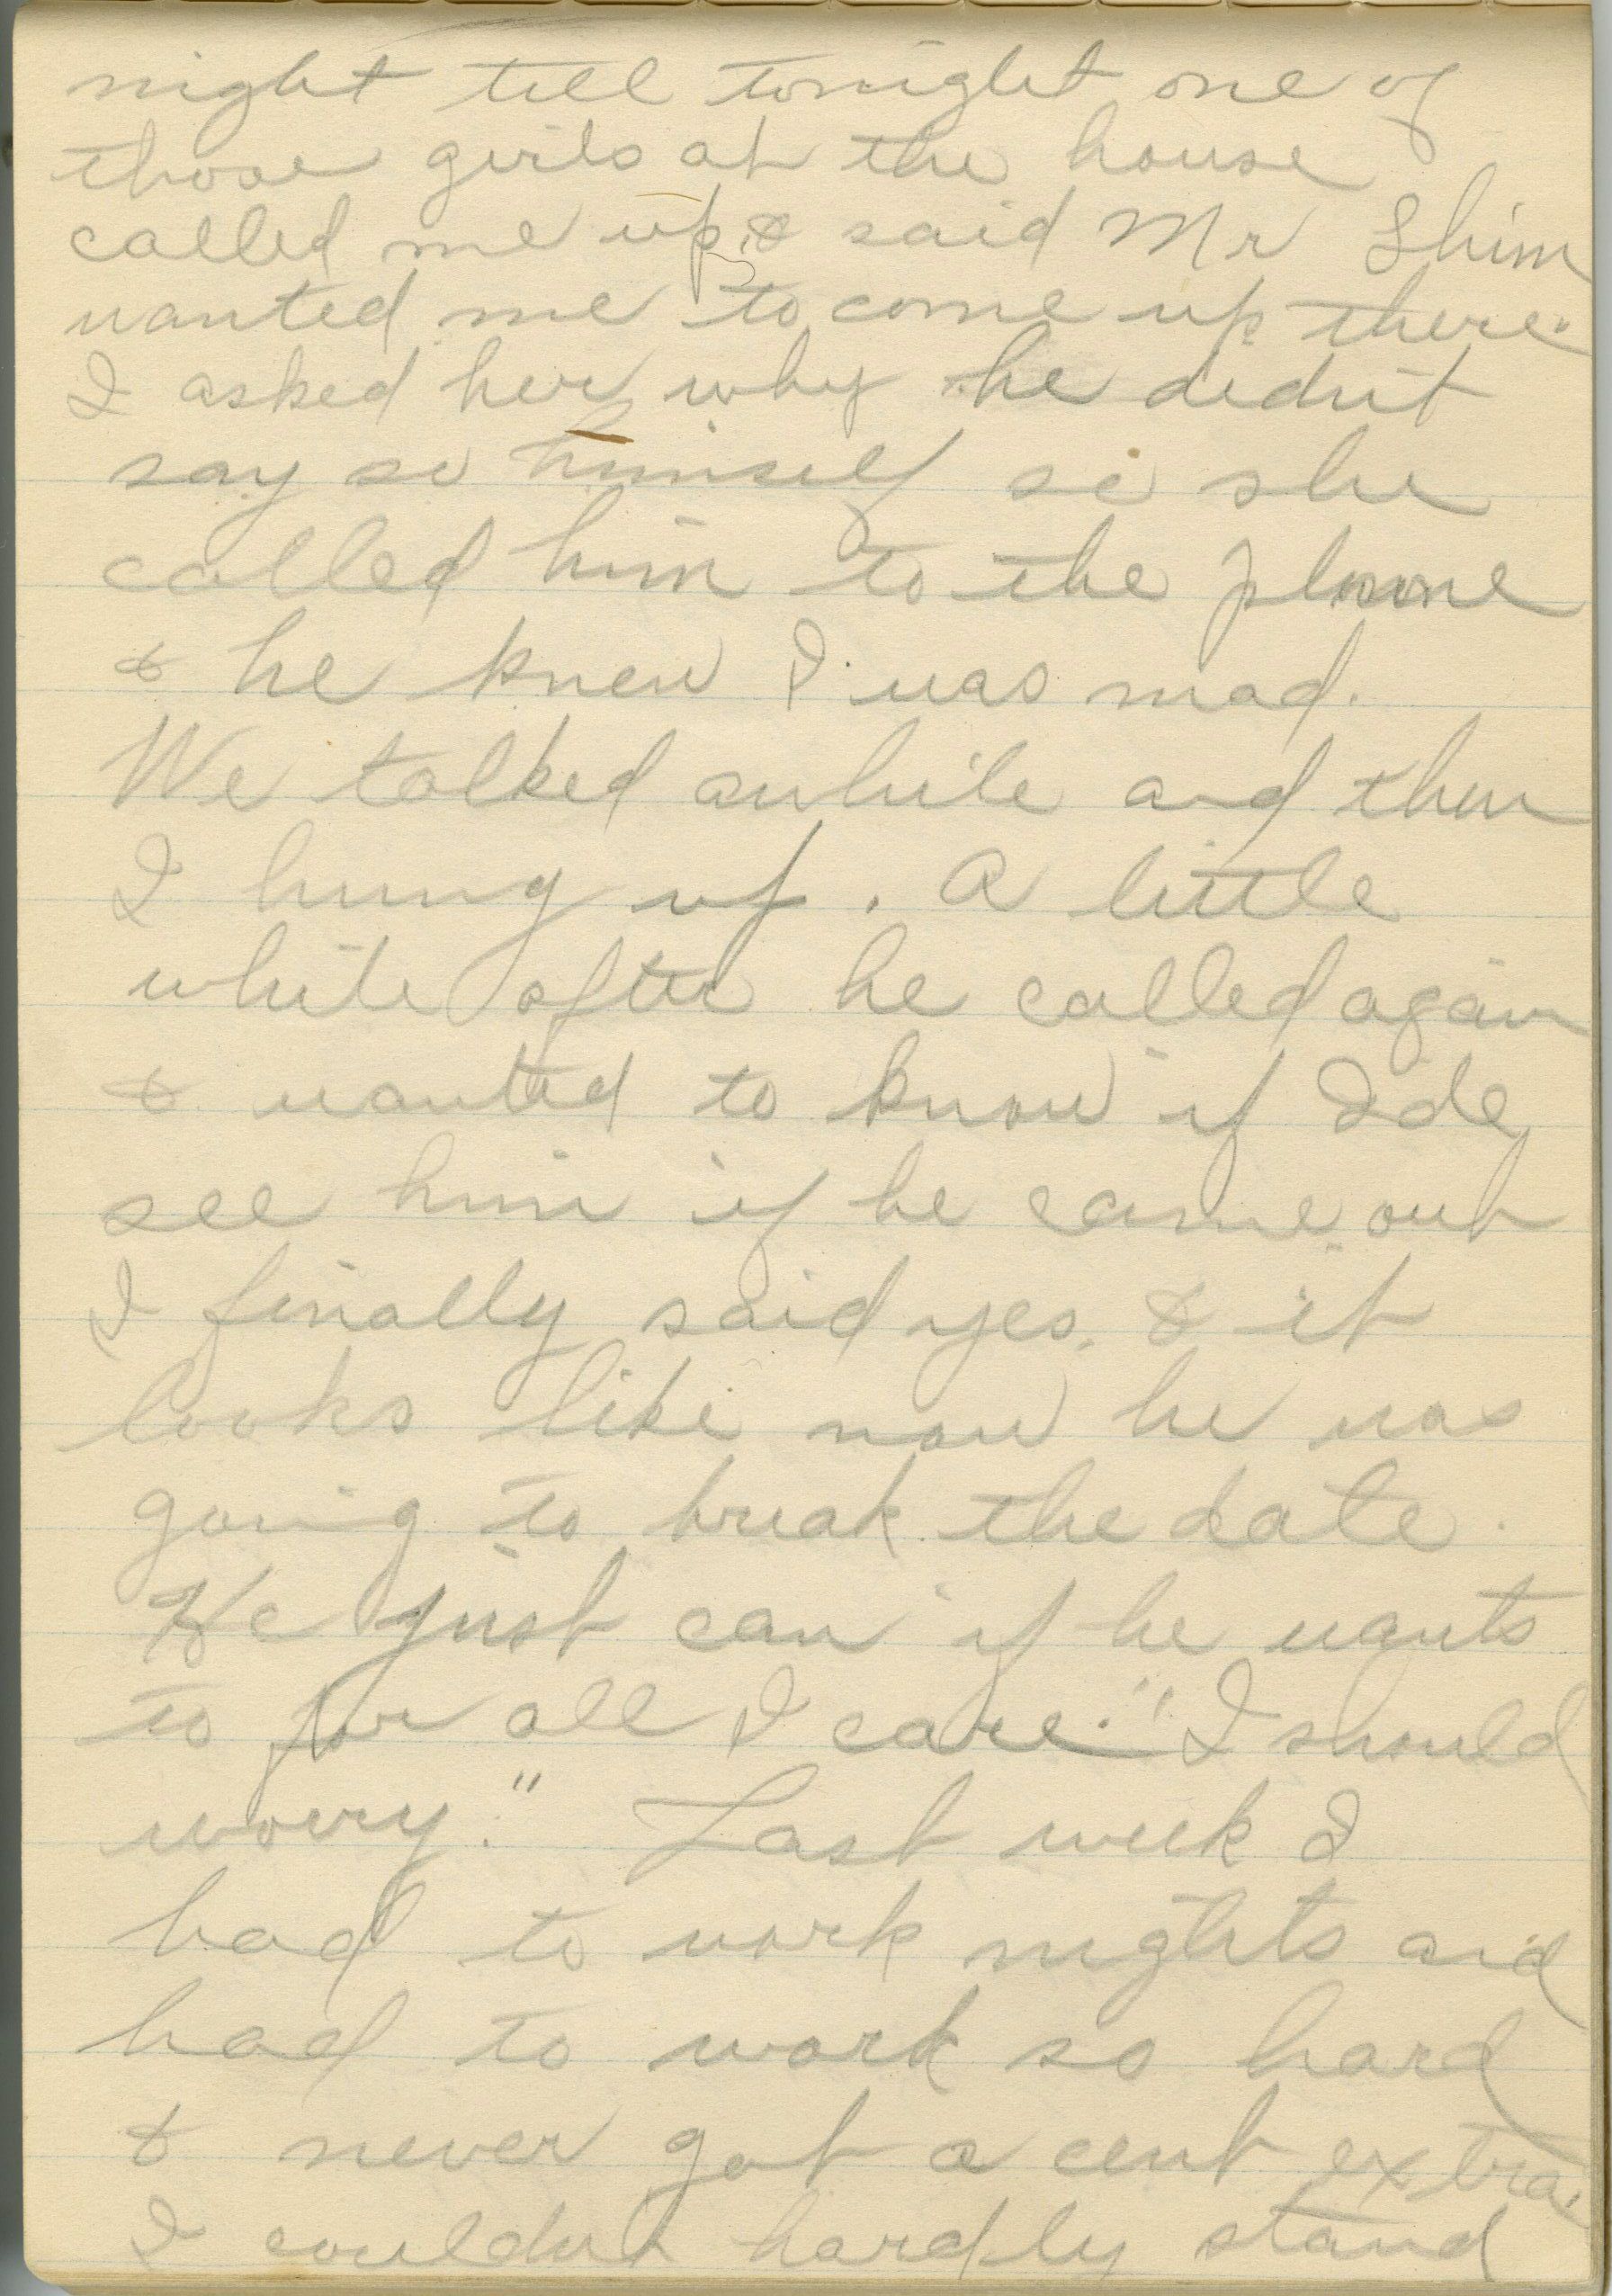 night till tonight one of
those girls at the house
called me up & said Mr Shim
wanted me to come up there.
I asked her why he didn't
say so himself so she
called him to the phone
& he knew I was mad.
We talked awhile and then
I hung up. A little
while after he called again
& wanted to know if I'de
see him if he came out
I finally said yes, & it
looks like now he was
going to break the date.
He just can if he wants
to for all I care. "I should
worry." Last week I
had to work nights and
had to work so hard
& never got a cent extra.
I couldn't hardly stand